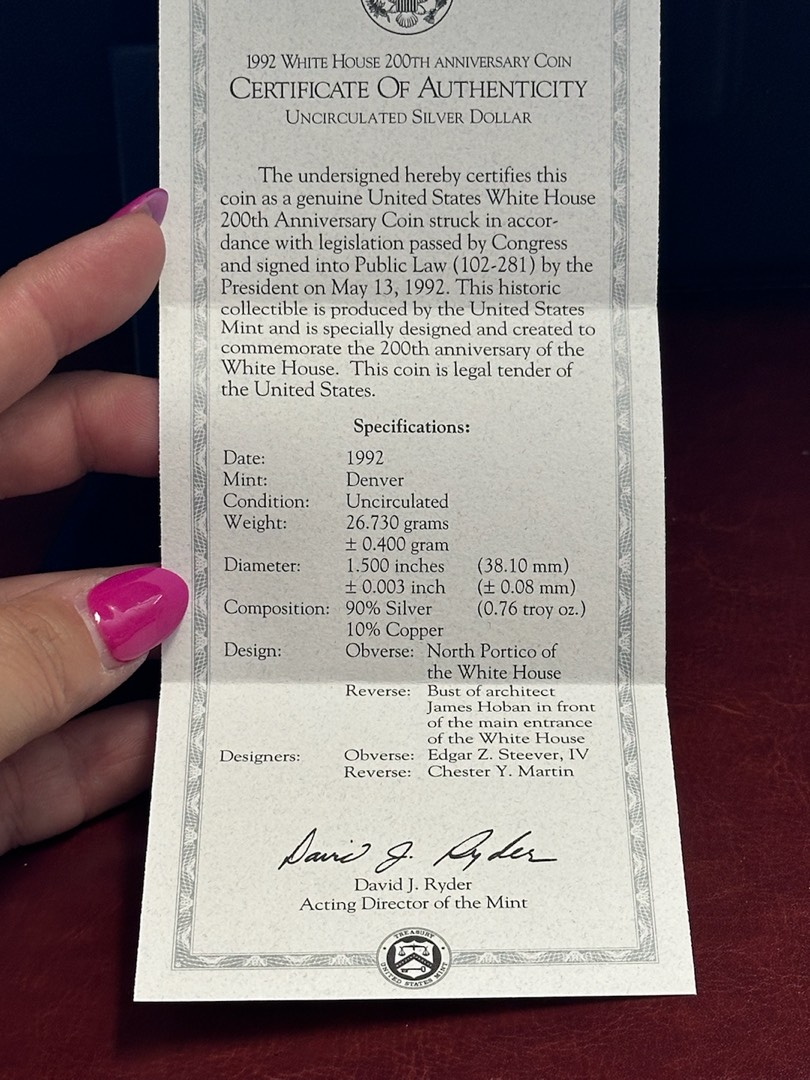 1992 WHITE HOUSE 200TH ANNIVERSARY COIN
CERTIFICATE OF AUTHENTICITY
UNCIRCULATED SILVER DOLLAR
The undersigned hereby certifies this
coin as a genuine United States White House
200th Anniversary Coin struck in accor-
dance with legislation passed by Congress
and signed into Public Law (102-281) by the
President on May 13, 1992. This historic
collectible is produced by the United States
Mint and is specially designed and created to
commemorate the 200th anniversary of the
White House. This coin is legal tender of
the United States.
Specifications:
Date: 1992
Mint: Denver
Condition: Uncirculated
Weight: 26.730 grams
± 0.400 gram
Diameter: 1.500 inches (38.10 mm)
± 0.003 inch (± 0.08 mm)
Composition: 90% Silver (0.76 troy oz.)
10% Copper
Design: Obverse: North Portico of
the White House
Reverse: Bust of architect
James Hoban in front
of the main entrance
of the White House
Designers: Obverse: Edgar Z. Steever, IV
Reverse: Chester Y. Martin
David J. Ryder
David J. Ryder
Acting Director of the Mint
TREASURY
UNITED STATES MINT